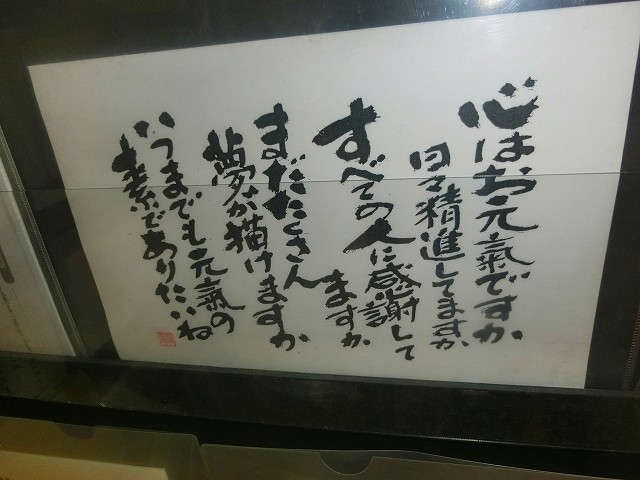 心はお元氣ですか
日々精進してますか
すべての人に感謝して
ますか
まだたくさん
夢が描けますか
いつまでも元氣の
素でありたいね